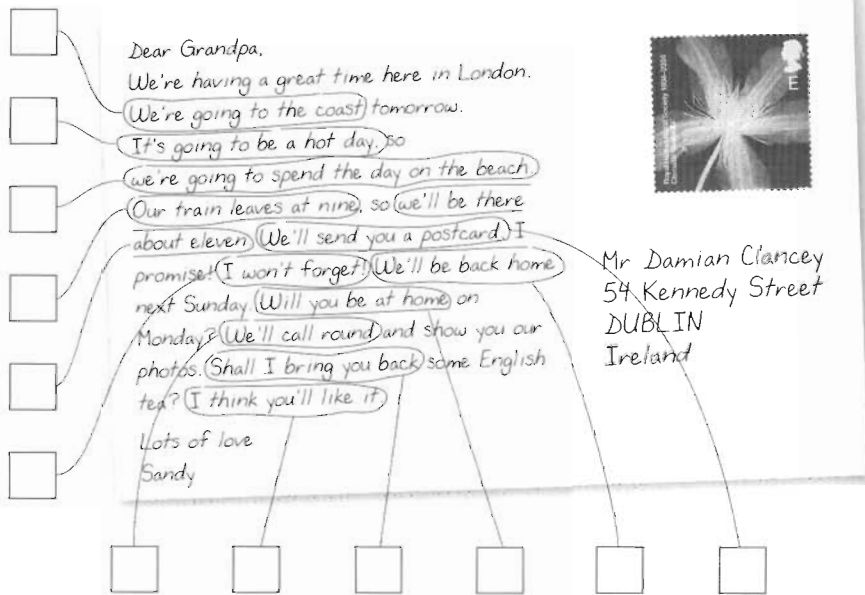 Dear Grandpa,
We're having a great time here in London.
We're going to the coast tomorrow.
It's going to be a hot day, so
we're going to spend the day on the beach.
Our train leaves at nine, so we'll be there
about eleven. We'll send you a postcard. I
promise! I won't forget! We'll be back home
next Sunday. Will you be at home on
Monday? We'll call round and show you our
photos. Shall I bring you back some English
tea? I think you'll like it.
Lots of love
Sandy
E
Mr Damian Clancey
54 Kennedy Street
DUBLIN
Ireland